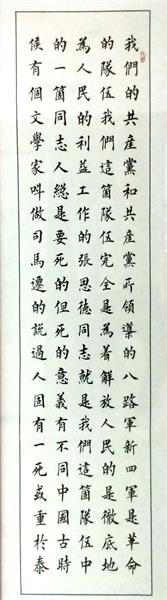 我們的共產黨和共產黨所領導的八路軍新四軍是革命
的隊伍我們這箇隊伍完全是為着解放人民的是徹底地
為人民的利益工作的張思德同志就是我們這箇隊伍中
的一箇同志人緫是要死的但死的意義有不同中國古時
候有個文學家呌做司馬遷的說過人固有一死或重於泰